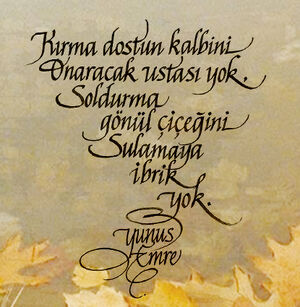 Kırma dostun kalbini
Onaracak ustası yok.
Soldurma
gönül çiçeğini
Sulamaya
ibrik
yok.
yunus
Emre